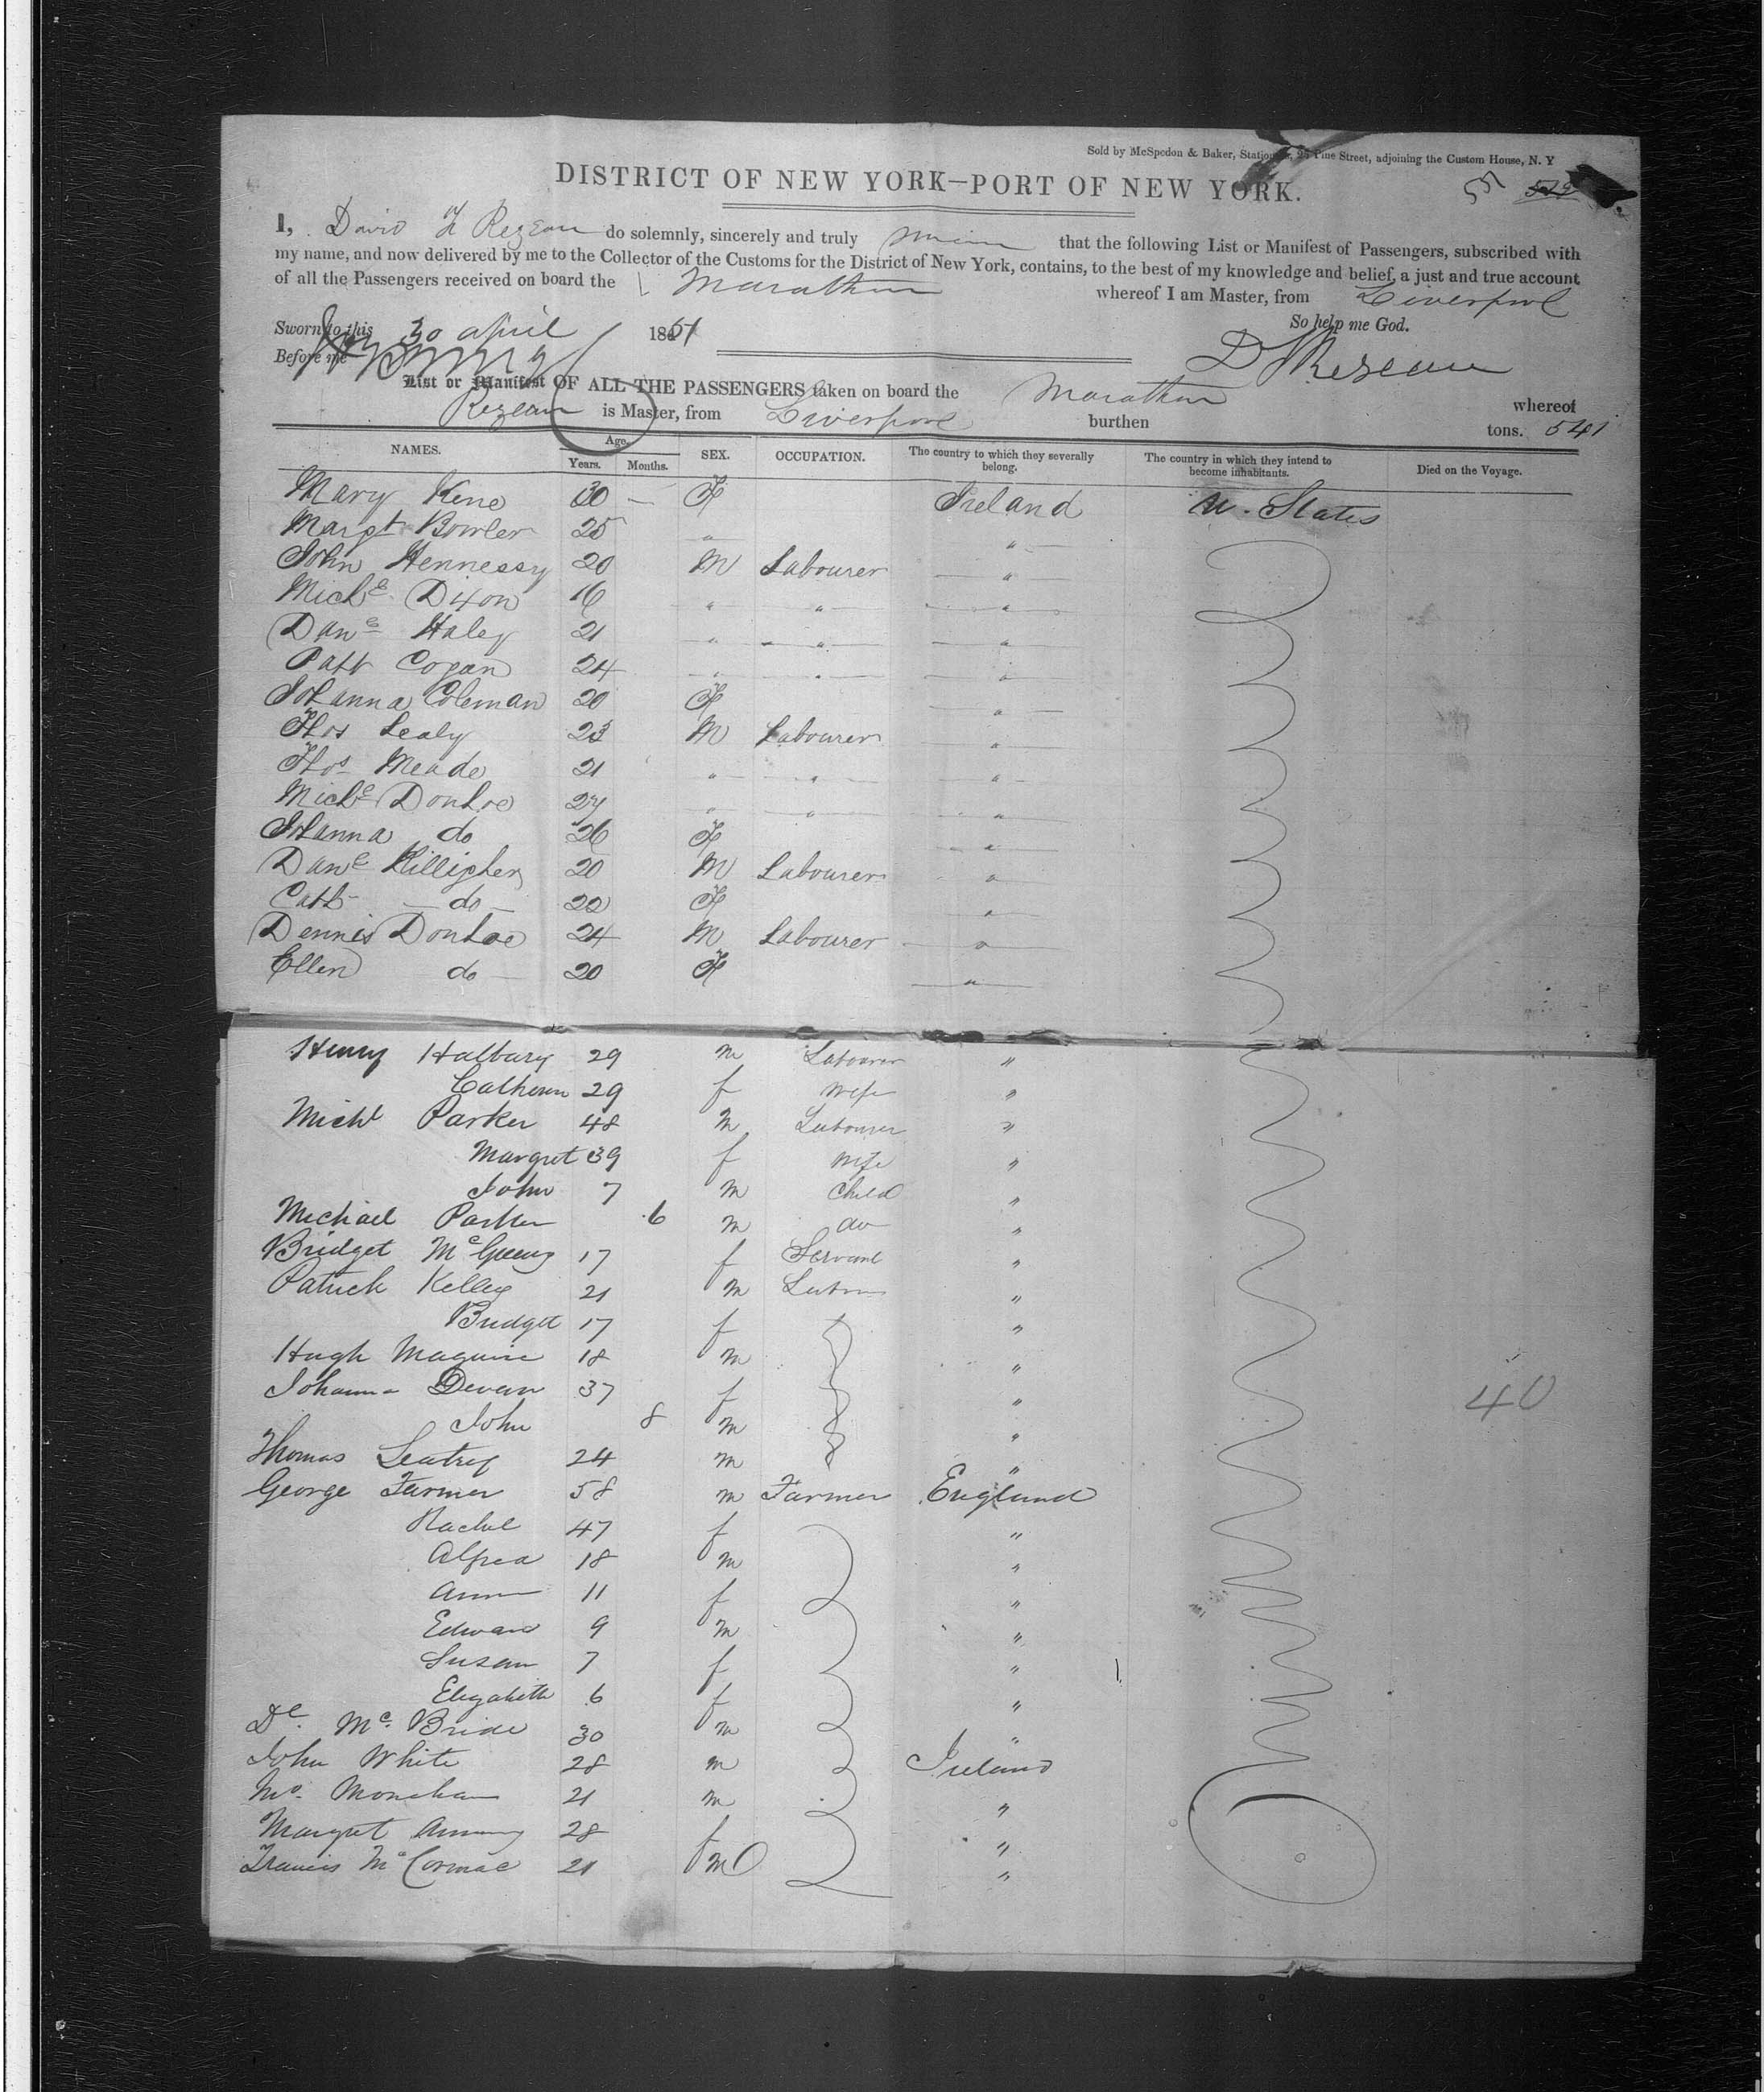 Sold by McSpedon & Baker, Stationers, 25 Pine Street, adjoining the Custom House, N. Y
DISTRICT OF NEW YORK—PORT OF NEW YORK.
I, David Rezeau do solemnly, sincerely and truly swear that the following List or Manifest of Passengers, subscribed with
my name, and now delivered by me to the Collector of the Customs for the District of New York, contains, to the best of my knowledge and belief, a just and true account
of all the Passengers received on board the Marathon whereof I am Master, from Liverpool
So help me God.
Sworn to this 30 april 1851
Before me
D Rezeau
List or Manifest OF ALL THE PASSENGERS taken on board the Marathon whereof
Rezeau is Master, from Liverpool burthen tons. 541
NAMES. Age. Years. Months. SEX. OCCUPATION. The country to which they severally belong. The country in which they intend to become inhabitants. Died on the Voyage.
Mary Kene 30 — F Ireland U. States
Margt Bowler 25 " "
John Hennessy 20 M Labourer "
Michl Dixon 16 " " "
Danl Haley 21 " " "
Patt Cogan 24 " " "
Johanna Coleman 20 F "
Thos Lealy 23 M Labourer "
Thos Meade 21 " " "
Michl Donhoe 27 " " "
Johanna do 26 F "
Danl Killigher 20 M Labourer "
Cath do 20 F "
Dennis Donhoe 24 M Labourer "
Ellen do 20 F "
Henry Halbury 29 m Labourer "
29 f wife "
Michl Parker 48 m Labourer "
Margret 39 f wife "
John 7 m Child "
Michael Parker 6 m do "
Bridget 17 f Servant "
Patrick Kelley 21 m "
Bridget 17 f "
Hugh Maguire 18 m "
Johanna Devan 37 f "
John 8 m "
Thomas 24 m "
George Farmer 58 m Farmer England
Rachel 47 f "
Alfred 18 m "
Ann 11 f "
Edward 9 m "
Susan 7 f "
Elizabeth 6 f "
Mc Bride 30 m "
John White 28 m Ireland
Monehan 21 m "
Margret 28 f "
Francis McCormac 21 m "
40